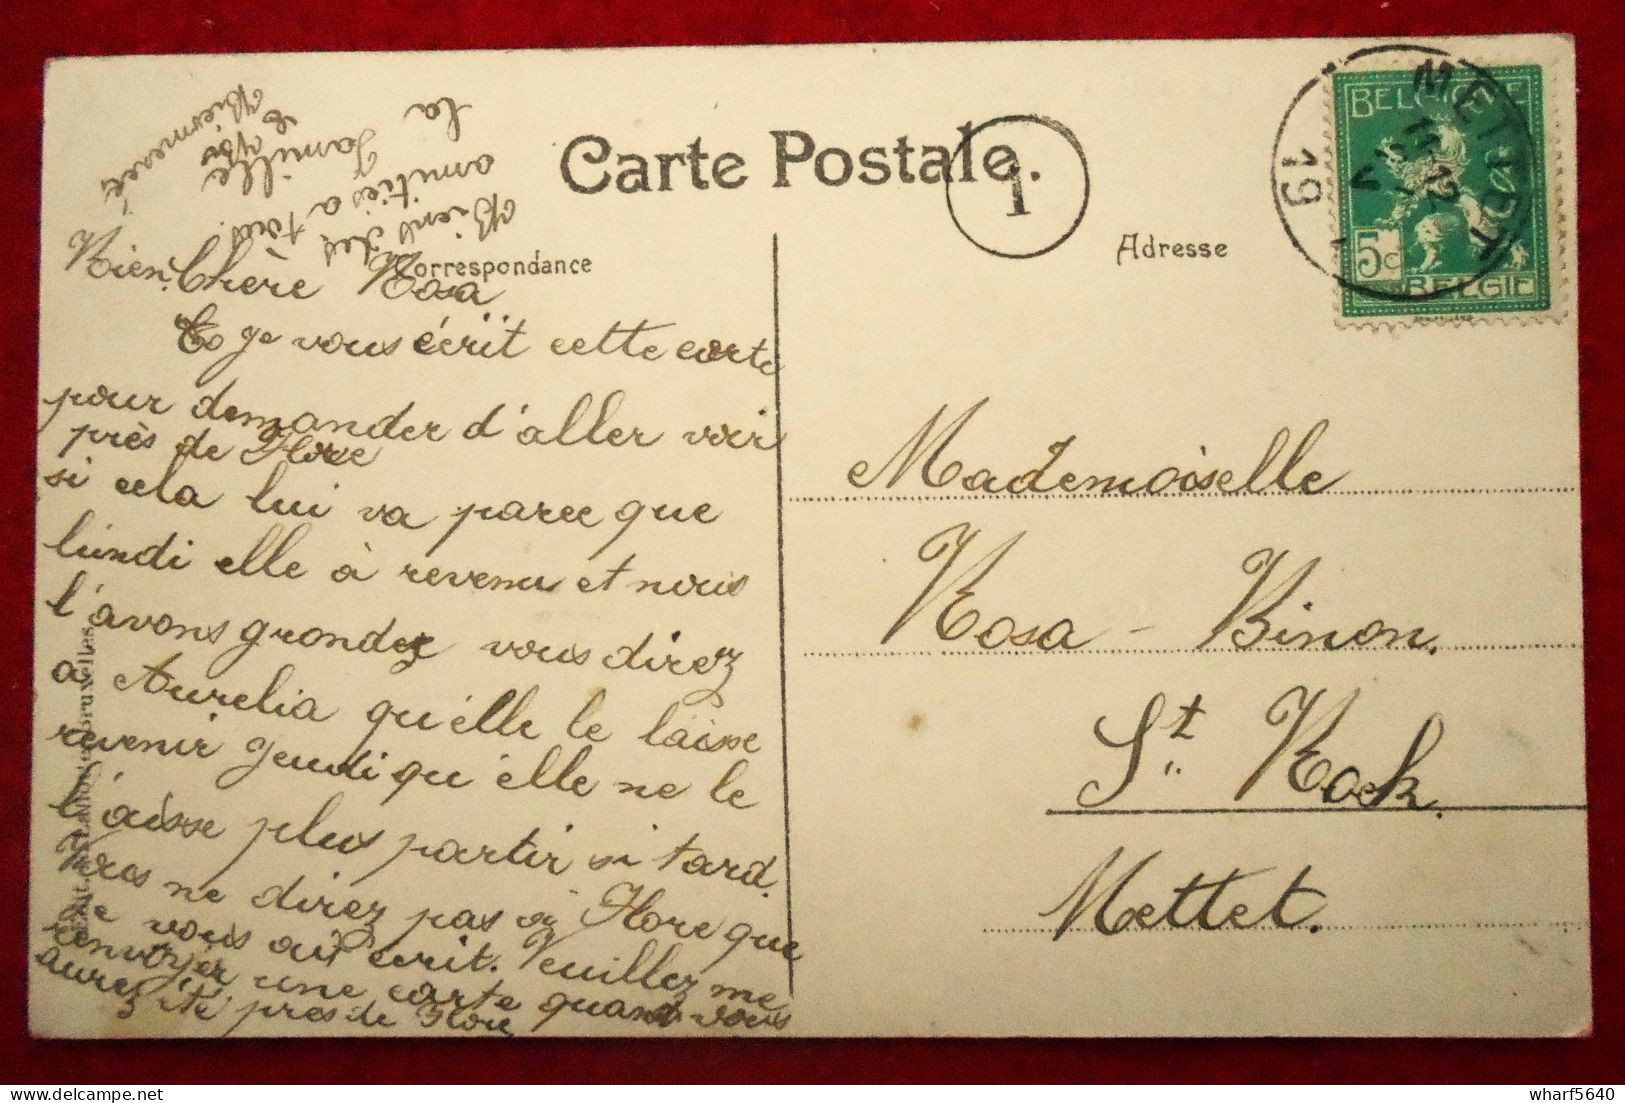 Carte Postale.
Correspondance
Adresse
1
METTET
19
BELGIQUE
5c
BELGIE
Bien des
amitiés a
la famille
Bien Chère Rosa
je vous écrit cette carte
pour demander d'aller voir
près de Flore
si cela lui va parce que
lundi elle à revenu et nous
l'avons grondez vous direz
a Aurelia qu'elle le laisse
revenir jeudi qu'elle ne le
laisse plus partir si tard.
Vous ne direz pas à Flore que
je vous ai écrit. Veuillez me
renvoyer une carte quand vous
aurez été près de Flore
Mademoiselle
Rosa - Binon.
St Rock.
Mettet.
wharf5640